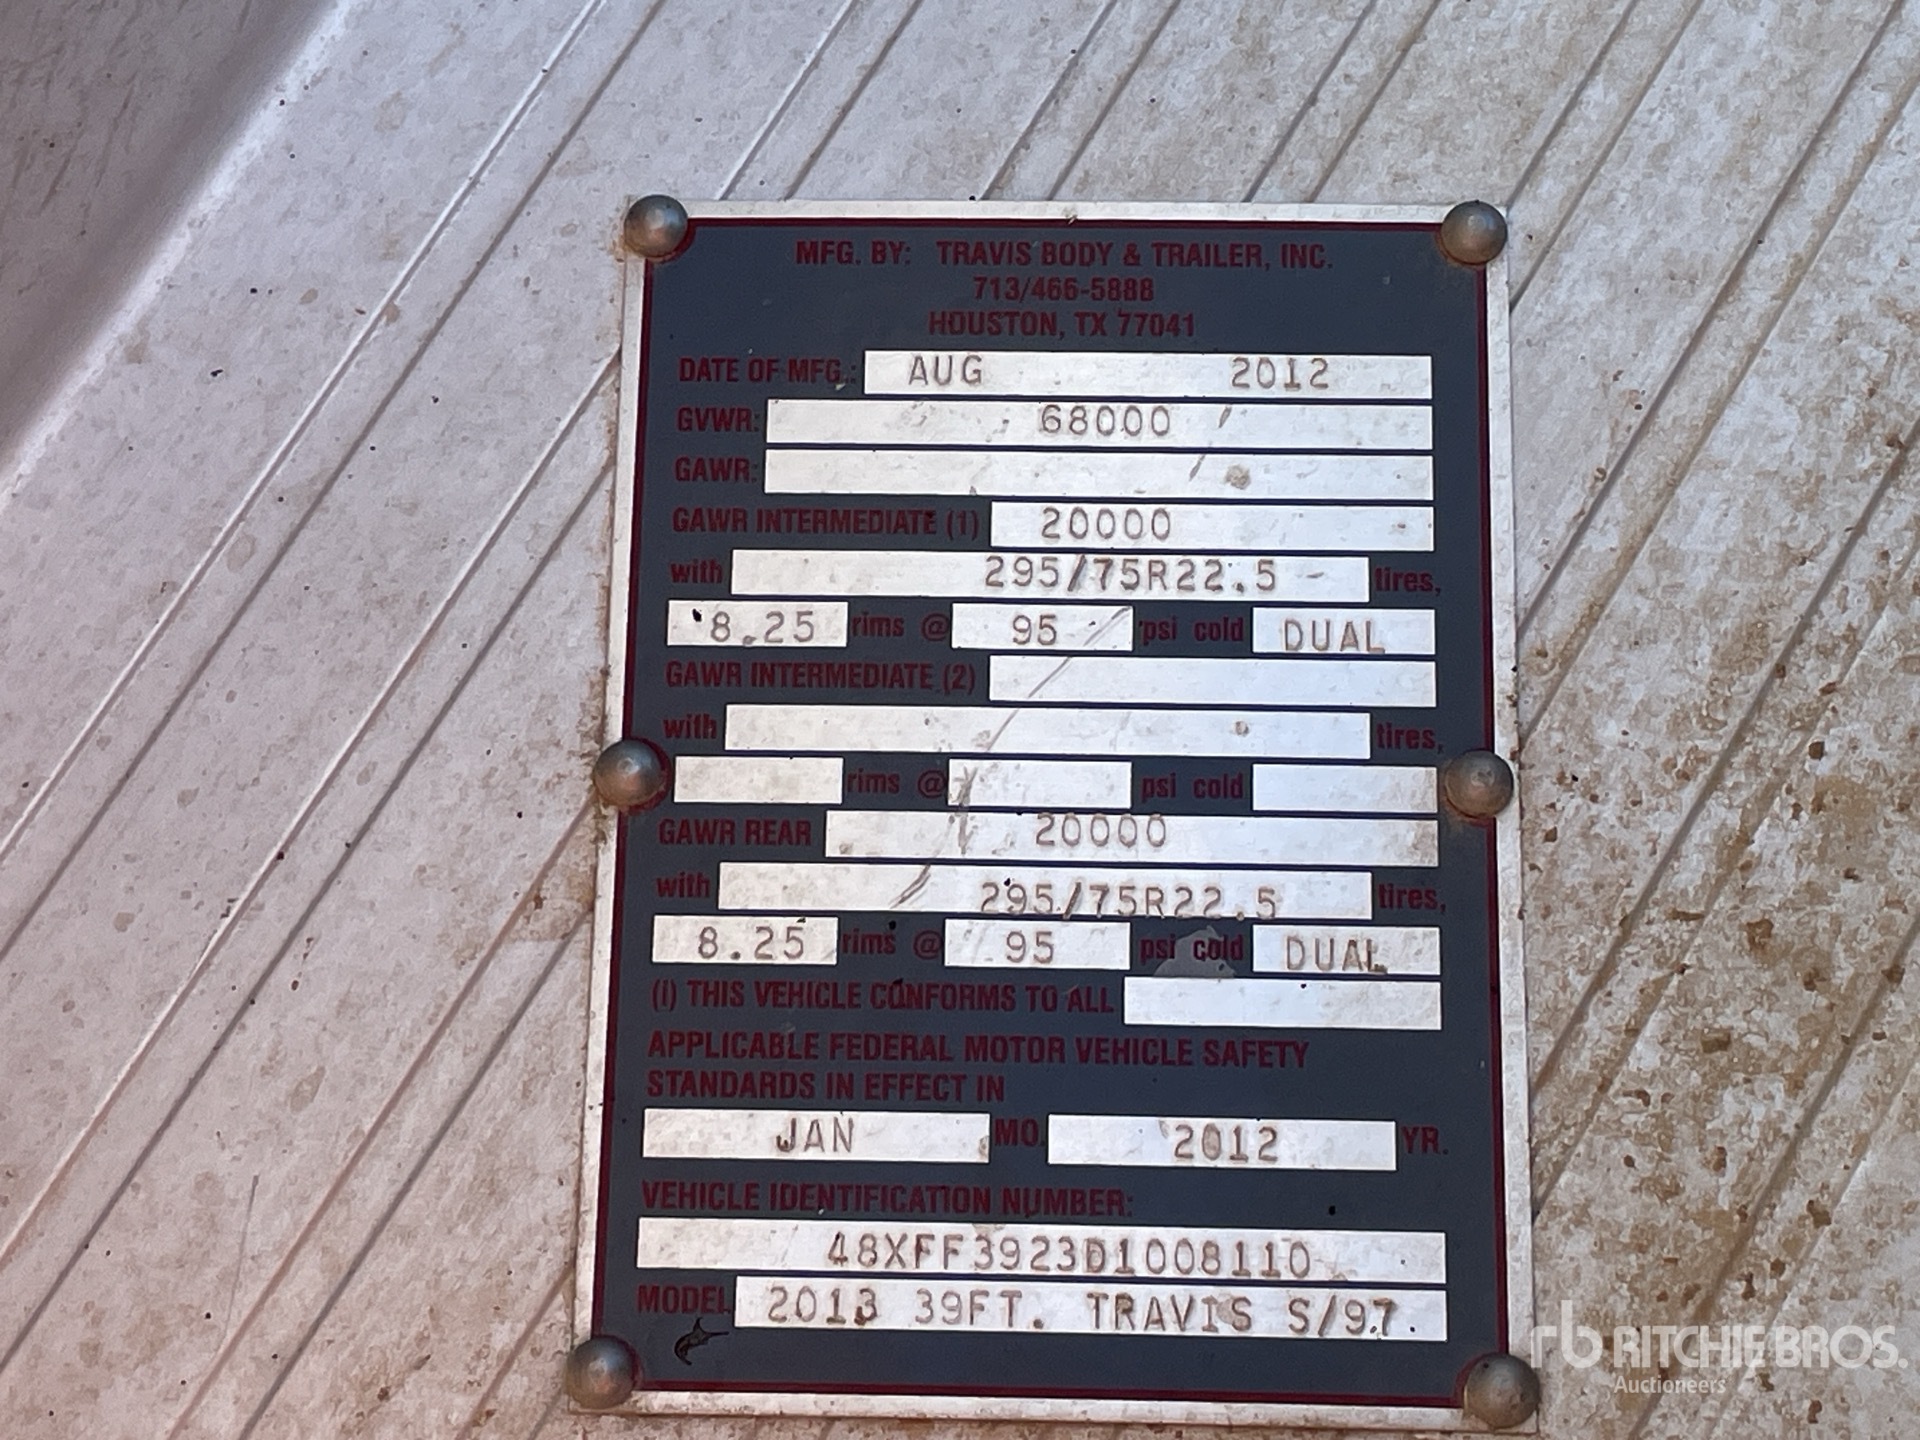 MFG. BY: TRAVIS BODY & TRAILER, INC.
713/466-5888
HOUSTON, TX 77041
DATE OF MFG.: AUG 2012
GVWR: 68000
GAWR:
GAWR INTERMEDIATE (1) 20000
with 295/75R22.5 tires,
8.25 rims @ 95 psi cold DUAL
GAWR INTERMEDIATE (2)
with tires,
rims @ psi cold
GAWR REAR 20000
with 295/75R22.5 tires,
8.25 rims @ 95 psi cold DUAL
(I) THIS VEHICLE CONFORMS TO ALL
APPLICABLE FEDERAL MOTOR VEHICLE SAFETY
STANDARDS IN EFFECT IN
JAN MO. 2012 YR.
VEHICLE IDENTIFICATION NUMBER:
48XFF3923D1008110
MODEL 2013 39FT. TRAVIS S/97.
rb RITCHIE BROS.
Auctioneers